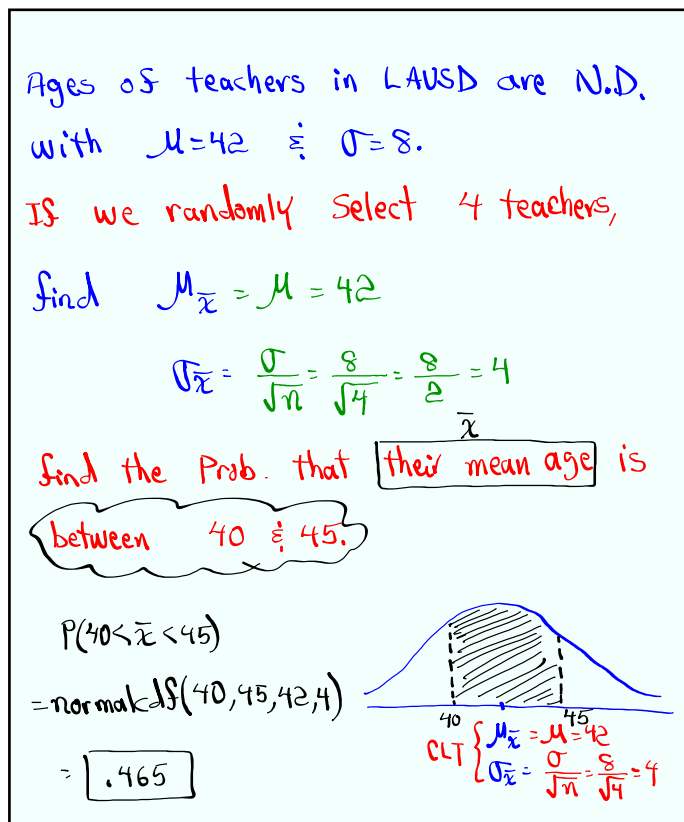 Ages of teachers in LAUSD are N.D.
with μ=42 & σ=8.
If we randomly Select 4 teachers,
find μx̄ = μ = 42
σx̄ = σ/√n = 8/√4 = 8/2 = 4
x̄
find the Prob. that their mean age is
between 40 & 45.
P(40<x̄<45)
=normalcdf(40,45,42,4)
= .465
40 45
CLT { μx̄ = μ = 42
σx̄ = σ/√n = 8/√4 = 4